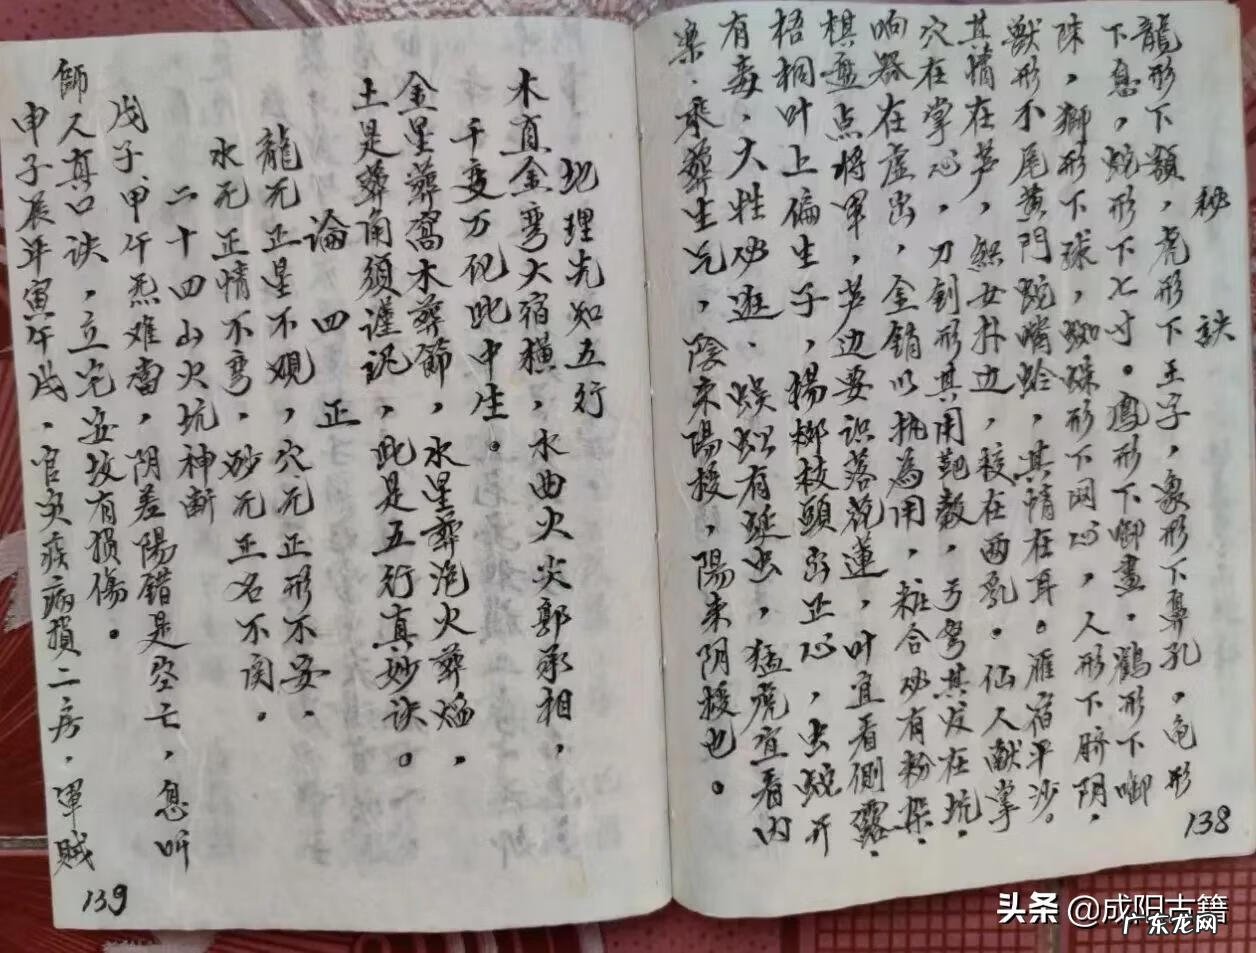 秘訣
龍形下額，虎形下王子，象形下鼻孔，龟形
下息，蛇形下七寸。鳳形下脚畫．鶴形下脚
陎，獅形下球，蜘蛛形下网心，人形下脐阴．
獸形不尾黄門，其情在耳。雁宿平沙。
其情在芦，女扑边，在两乳。仙人献掌
穴在掌心，刀剑形其用靶，弓弩其发在坑．
响器在虚出，金銷以执為用，粧合必有粉
棋盘点将軍，芦边要识落花蓮，叶宜看側露．
梧桐叶上偏生子，楊柳枝頭出正心，虫
有毒，大牲必逛．蜈蚣有蜒虫，猛虎宜看内
案．乘葬生气，陰来陽授，陽来阴授也。
138
地理先知五行
木直金弯大宿横，水曲火尖郭承相，
千变万化此中生。
金星葬窩木葬節，水星葬泡火葬焔，
土是葬角須谨記，此是五行真妙诀。
論四正
龍无正星不观，穴无正形不安．
水无正情不弯，砂无正名不関。
二十四山火坑神断
戊子甲午炁难当，阴差陽错是空亡，息听
師人真口诀，立宅安坟有損傷。
申子辰年寅午戌．官灾疾病損二房．軍賊
139
头条 @成阳古籍
广东龙网